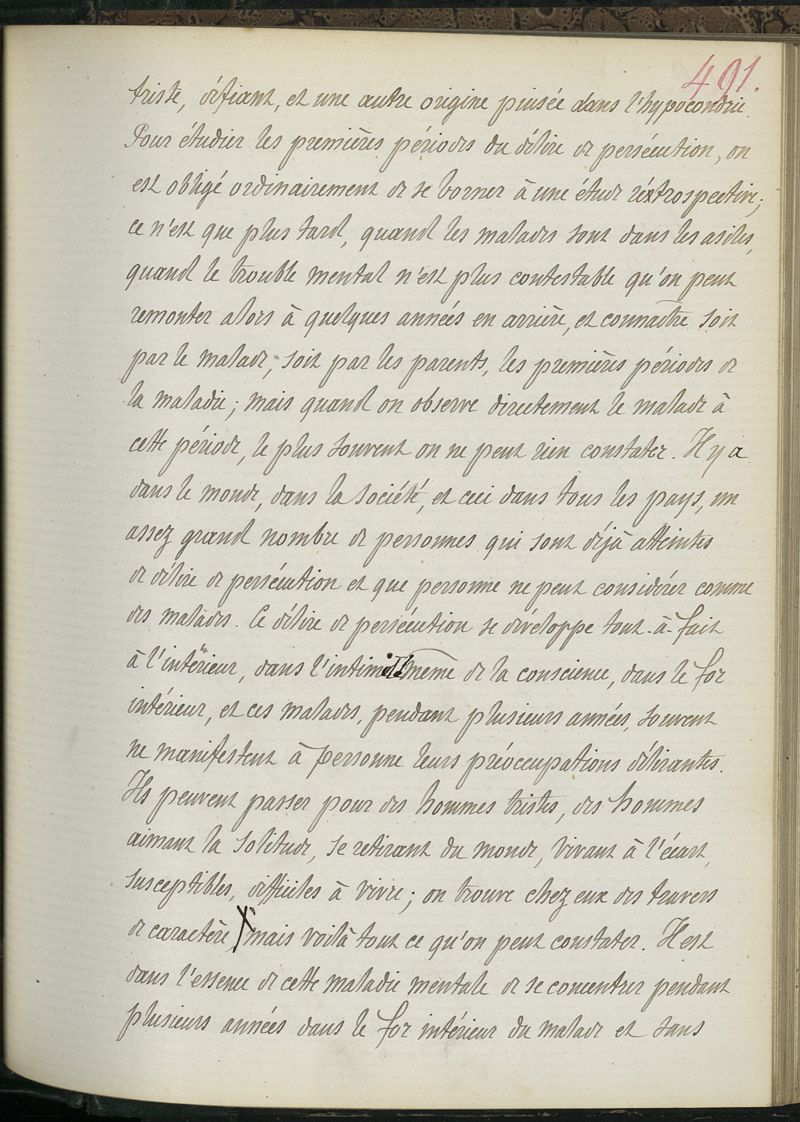 491.
triste, défiant, et une autre origine puisée dans l'hypocondrie.
Pour étudier les premières périodes du délire de persécution, on
est obligé ordinairement de se borner à une étude rétrospective;
ce n'est que plus tard, quand les malades sont dans les asiles,
quand le trouble mental n'est plus contestable qu'on peut
remonter alors à quelques années en arrière, et connaître soit
par le malade, soit par les parents, les premières périodes de
la maladie; mais quand on observe directement le malade à
cette période, le plus souvent on ne peut rien constater. Il y a
dans le monde, dans la société, et ceci dans tous les pays, un
assez grand nombre de personnes qui sont déjà atteintes
de délire de persécution et que personne ne peut considérer comme
des malades. Ce délire de persécution se développe tout-à-fait
à l'intérieur, dans l'intimité même de la conscience, dans le for
intérieur, et ces malades, pendant plusieurs années, souvent
ne manifestent à personne leurs préoccupations délirantes.
Ils peuvent passer pour des hommes tristes, des hommes
aimant la solitude, se retirant du monde, vivant à l'écart,
susceptibles, difficiles à vivre; on trouve chez eux des travers
de caractère, mais voilà tout ce qu'on peut constater. Il est
dans l'essence de cette maladie mentale de se concentrer pendant
plusieurs années dans le for intérieur du malade et sans